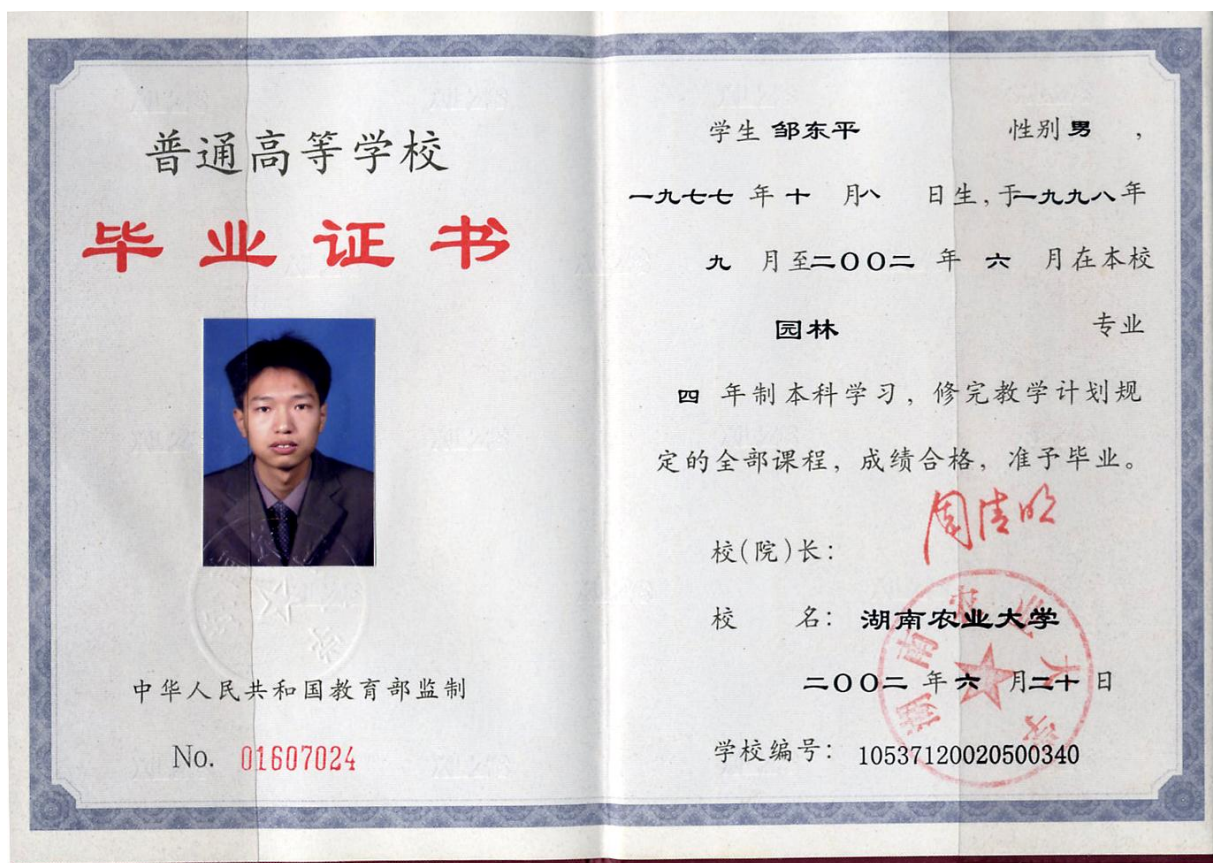 普通高等学校
毕业证书
中华人民共和国教育部监制
No. 01607024
学生 邹东平 性别 男 ,
一九七七 年 十 月八 日生, 于一九九八年
九 月至二〇〇二 年 六 月在本校
园林 专业
四 年制本科学习, 修完教学计划规
定的全部课程, 成绩合格, 准予毕业。
校(院)长: 周清明
校 名: 湖南农业大学
二〇〇二 年 六 月二十 日
学校编号: 10537120020500340
湖南农业大学